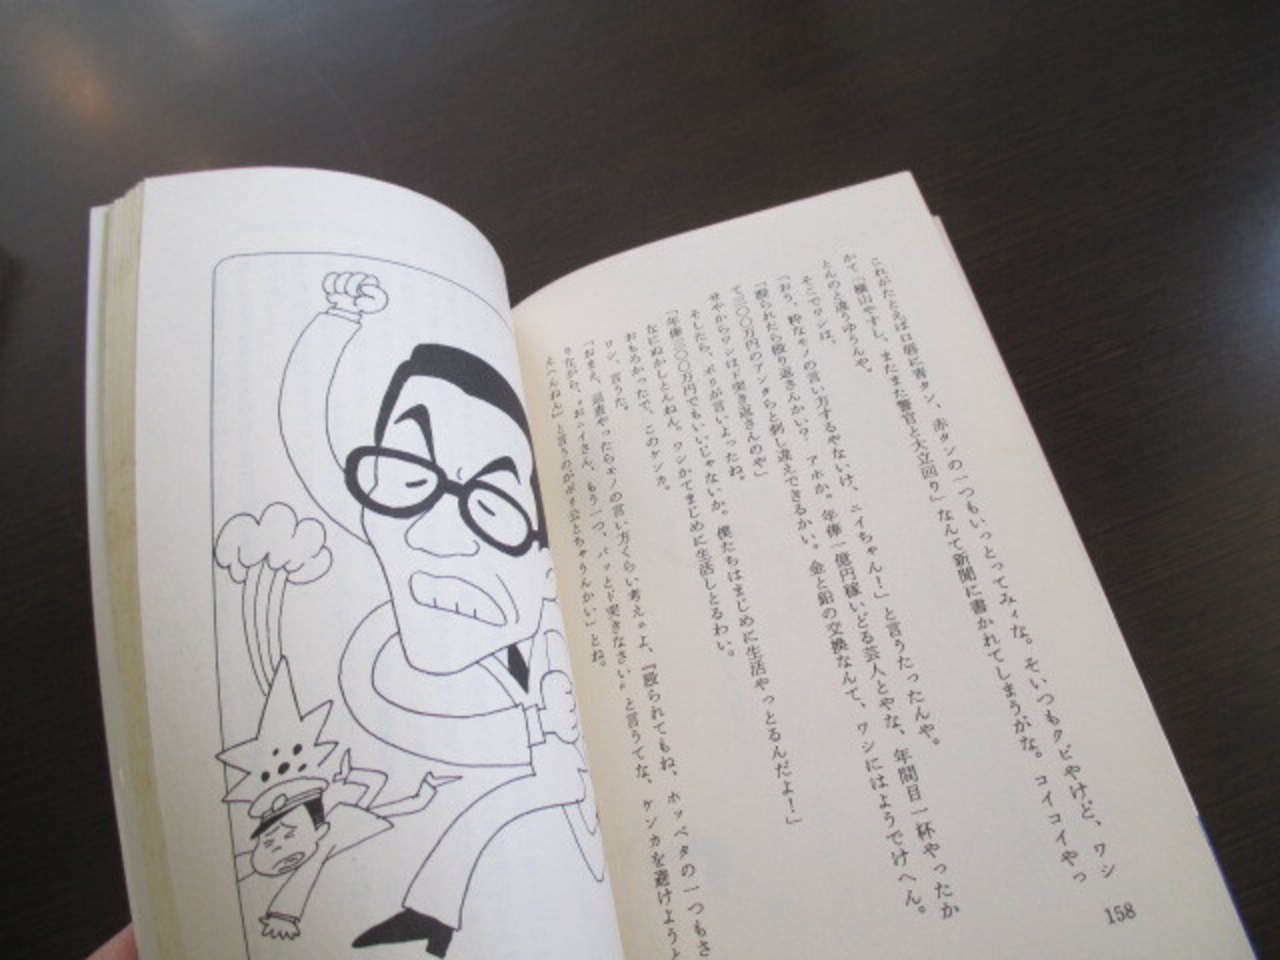 これがたとえば口唇に青タン、赤タンの一つもいっとってみィな。そいつもクビやけど、ワシ
かて「横山やすし、またまた警官と大立回り」なんて新聞に書かれてしまうがな。コイコイやっ
とんのと違うゆうんや。
そこでワシは、
「おう、粋なモノの言い方するやないけ、ニイちゃん!」と言うたったんや。
「殴られたら殴り返さんかい? アホか。年俸一億円稼いどる芸人とやな、年間目一杯やったか
て三〇〇万円のアンタらと刺し違えできるかい。金と鉛の交換なんて、ワシにはようでけへん。
せやからワシはド突き返さんのや」
そしたら、ポリが言いよったね。
「年俸三〇〇万円でもいいじゃないか。僕たちはまじめに生活やっとるんだよ!」
なにぬかしとんねん。ワシかてまじめに生活しとるわい。
おもろかったで、このケンカ。
ワシ、言うた。
「おまえ、巡査やったらモノの言い方くらい考え。よ、『殴られてもね、ホッペタの一つもさ
しながら、〝おニイさん、もう一つ、バッとド突きなさい〟と言うてな、ケンカを避けようと
えへんねん』と言うのがポリ公とちゃうんかい」とね。
158